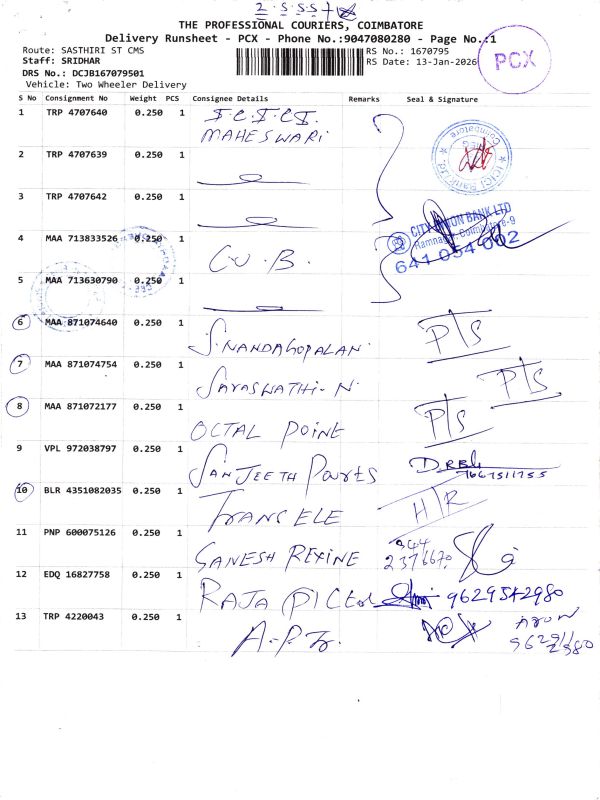 2 . S . S . S
THE PROFESSIONAL COURIERS, COIMBATORE
Delivery Runsheet - PCX - Phone No.:9047080280 - Page No.:1
Route: SASTHIRI ST CMS
RS No.: 1670795
Staff: SRIDHAR
RS Date: 13-Jan-2026
DRS No.: DCJB167079501
Vehicle: Two Wheeler Delivery
PCX
S No Consignment No Weight PCS Consignee Details Remarks Seal & Signature
1 TRP 4707640 0.250 1 I.C.I.C.I.
MAHESWARI
ICICI Bank Ltd. Coimbatore
2 TRP 4707639 0.250 1
3 TRP 4707642 0.250 1
CITY UNION BANK LTD
Ramnagar Coimbatore-9
641-054-002
4 MAA 713833526 0.250 1 C.U.B.
5 MAA 713630790 0.250 1
6 MAA 871074640 0.250 1 S. NANDAGOPALAN. P/S
7 MAA 871074754 0.250 1 SARASWATHI-N. P/S
8 MAA 871072177 0.250 1 OCTAL POINT P/S
9 VPL 972038797 0.250 1 SANJEETH Parts
7667511755
10 BLR 4351082035 0.250 1 TRANS ELE H/R
11 PNP 600075126 0.250 1 GANESH REXINE 944
2376670
12 EDQ 16827758 0.250 1 RAJA (P) Ltd 9629542980
13 TRP 4220043 0.250 1 ARUN